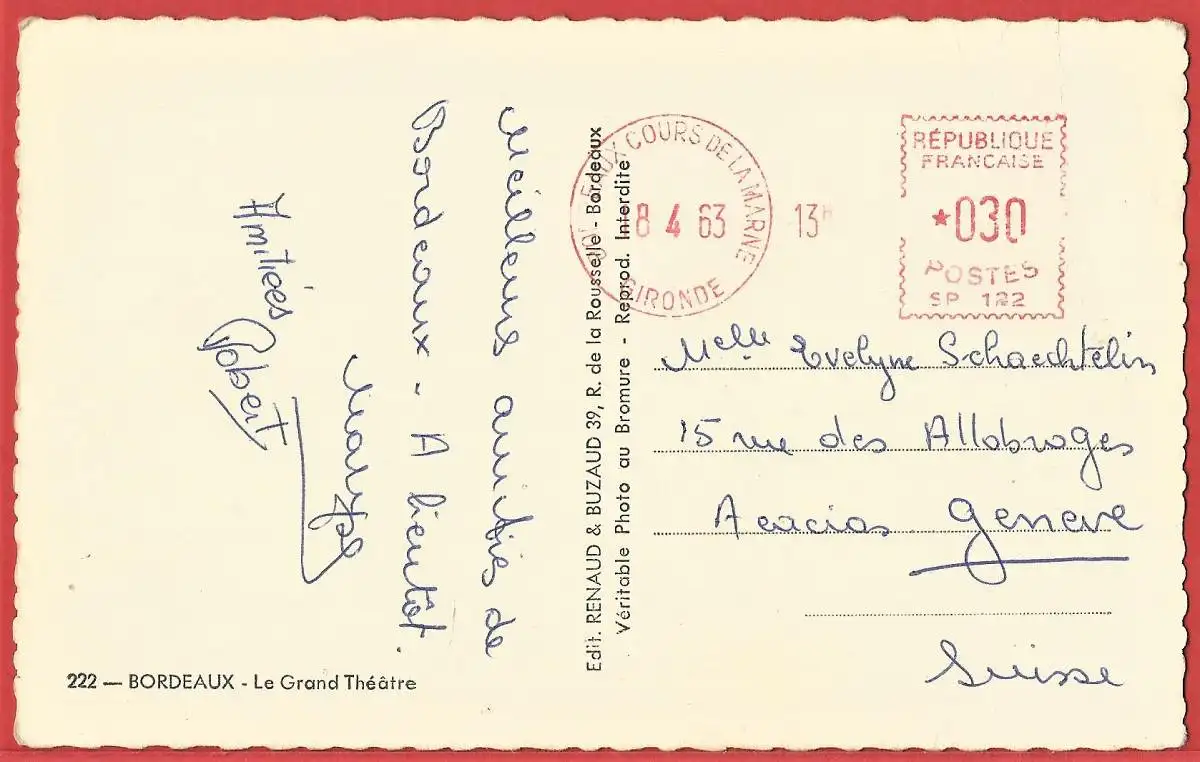 Meilleures amitiés de
Bordeaux - A bientôt.
Amitiés
222 — BORDEAUX - Le Grand Théâtre
Edit. RENAUD & BUZAUD 39, R. de la Rousselle - Bordeaux
Véritable Photo au Bromure - Reprod. Interdite
BORDEAUX COURS DE LA MARNE
8 4 63
GIRONDE
13H
RÉPUBLIQUE
FRANCAISE
*030
POSTES
SP 122
Melle Evelyne Schaechtélin
15 rue des Allobroges
Acacias Geneve
Suisse